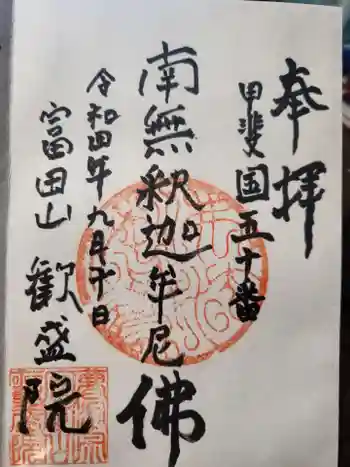 奉拝
甲斐国五十番
南無釈迦牟尼佛
令和四年九月廿日
富田山 歓盛院